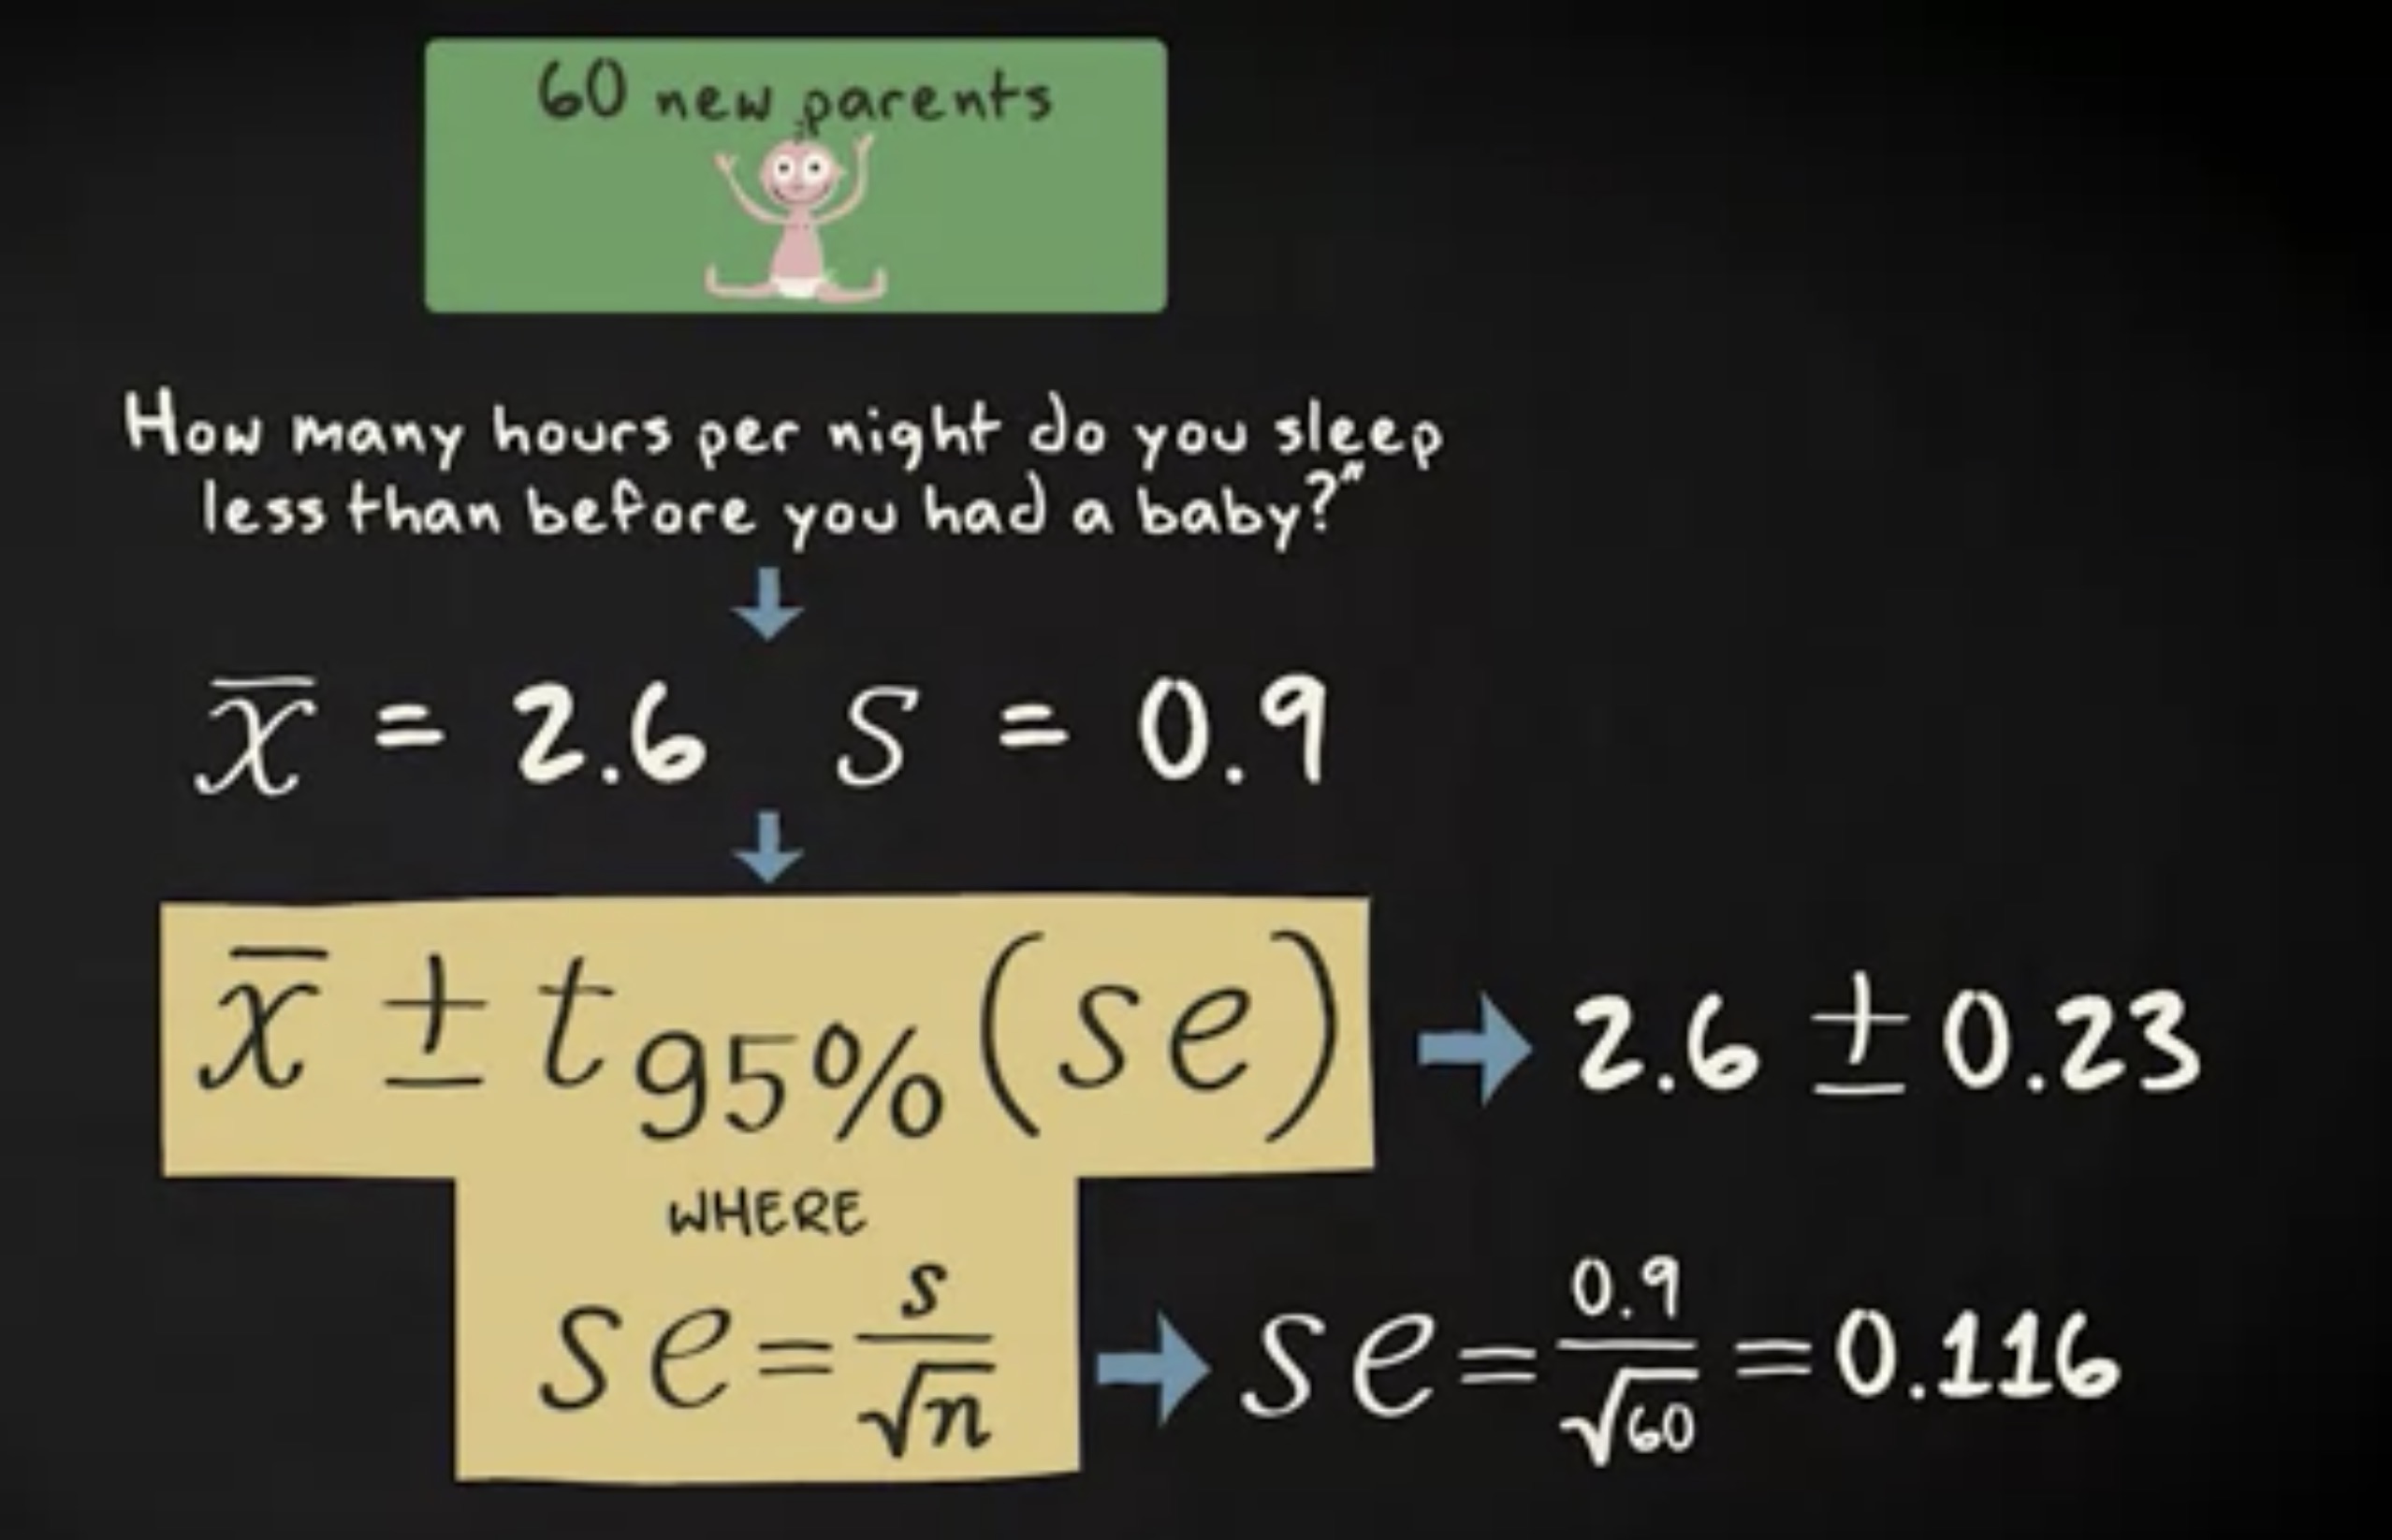 60 new parents
How many hours per night do you sleep
less than before you had a baby?"
x̅ = 2.6 s = 0.9
x̅ ± t95% (se) 2.6 ± 0.23
WHERE
se = s/√n se = 0.9/√60 = 0.116